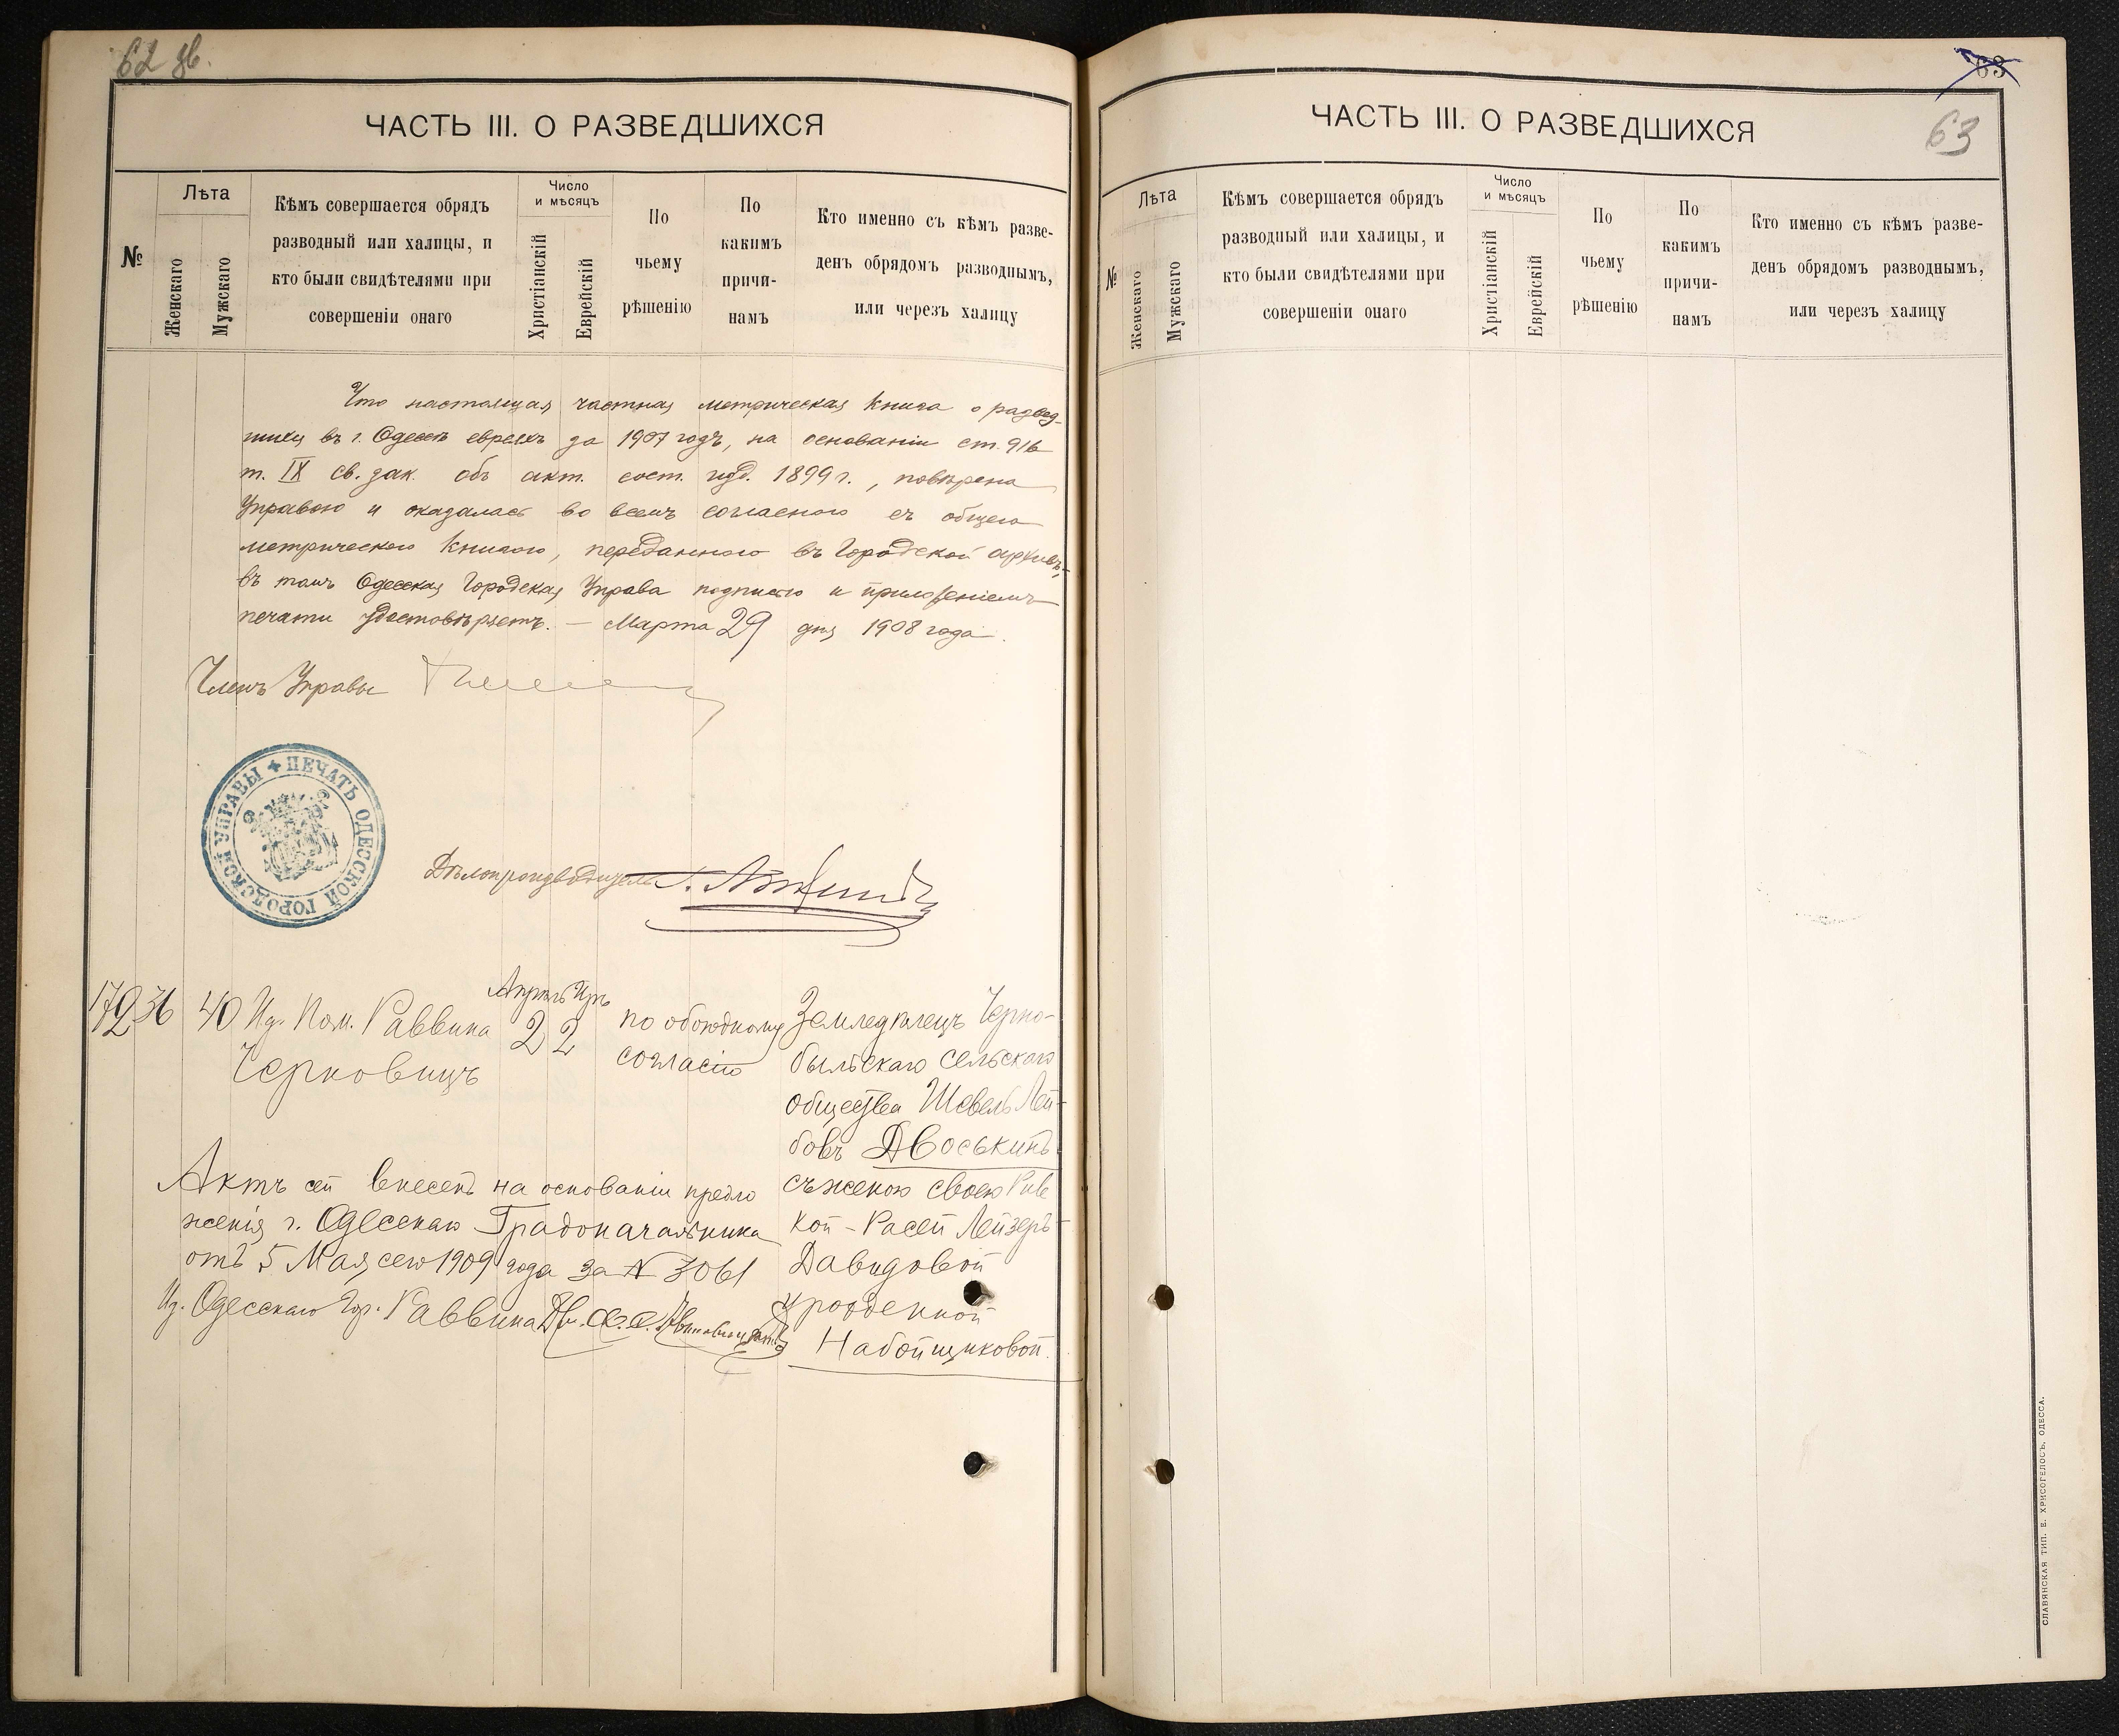 62 об.
ЧАСТЬ III. О РАЗВЕДШИХСЯ
№
Лѣта
Женскаго
Мужскаго
Кѣмъ совершается обрядъ
разводный или халицы, и
кто были свидѣтелями при
совершеніи онаго
Число
и мѣсяцъ
Христіанскій
Еврейскій
По
чьему
рѣшенію
По
какимъ
причи-
намъ
Кто именно съ кѣмъ разве-
денъ обрядомъ разводнымъ,
или черезъ халицу
Что настоящая частная метрическая книга о развед-
шихся въ г. Одессѣ евреяхъ за 1907 годъ, на основаніи ст. 916
т. IX св. зак. объ акт. сост. изд. 1899 г., повѣрена
Управою и оказалась во всемъ согласною съ общею
метрическою книгою, переданною въ Городской архивъ,
въ томъ Одесская Городская Управа подписью и приложеніемъ
печати удостовѣряетъ. — Марта 29 дня 1908 года.
Членъ Управы
ПЕЧАТЬ ОДЕССКОЙ ГОРОДСКОЙ УПРАВЫ
Дѣлопроизводитель
172 36 40 Ид. Пом. Раввина
Черновицъ
Апрѣль Иръ
2 2
по обоюдному
согласію
Земледѣлецъ Черно-
быльскаго сельскаго
общества Шевель Лей-
бовъ Двоськинъ
съ женою своею Рив
кой-Расей Лейзеръ-
Давидовой
урожденной
Набойщиковой.
Актъ сей внесенъ на основаніи предло
женія г. Одесскаго Градоначальника
отъ 5 Мая сего 1909 года за № 3061
Ид. Одесскаго Гор. Раввина
63
63
ЧАСТЬ III. О РАЗВЕДШИХСЯ
№
Лѣта
Женскаго
Мужскаго
Кѣмъ совершается обрядъ
разводный или халицы, и
кто были свидѣтелями при
совершеніи онаго
Число
и мѣсяцъ
Христіанскій
Еврейскій
По
чьему
рѣшенію
По
какимъ
причи-
намъ
Кто именно съ кѣмъ разве-
денъ обрядомъ разводнымъ,
или черезъ халицу
СЛАВЯНСКАЯ ТИП. Е. ХРИСОГЕЛОСЪ, ОДЕССА.